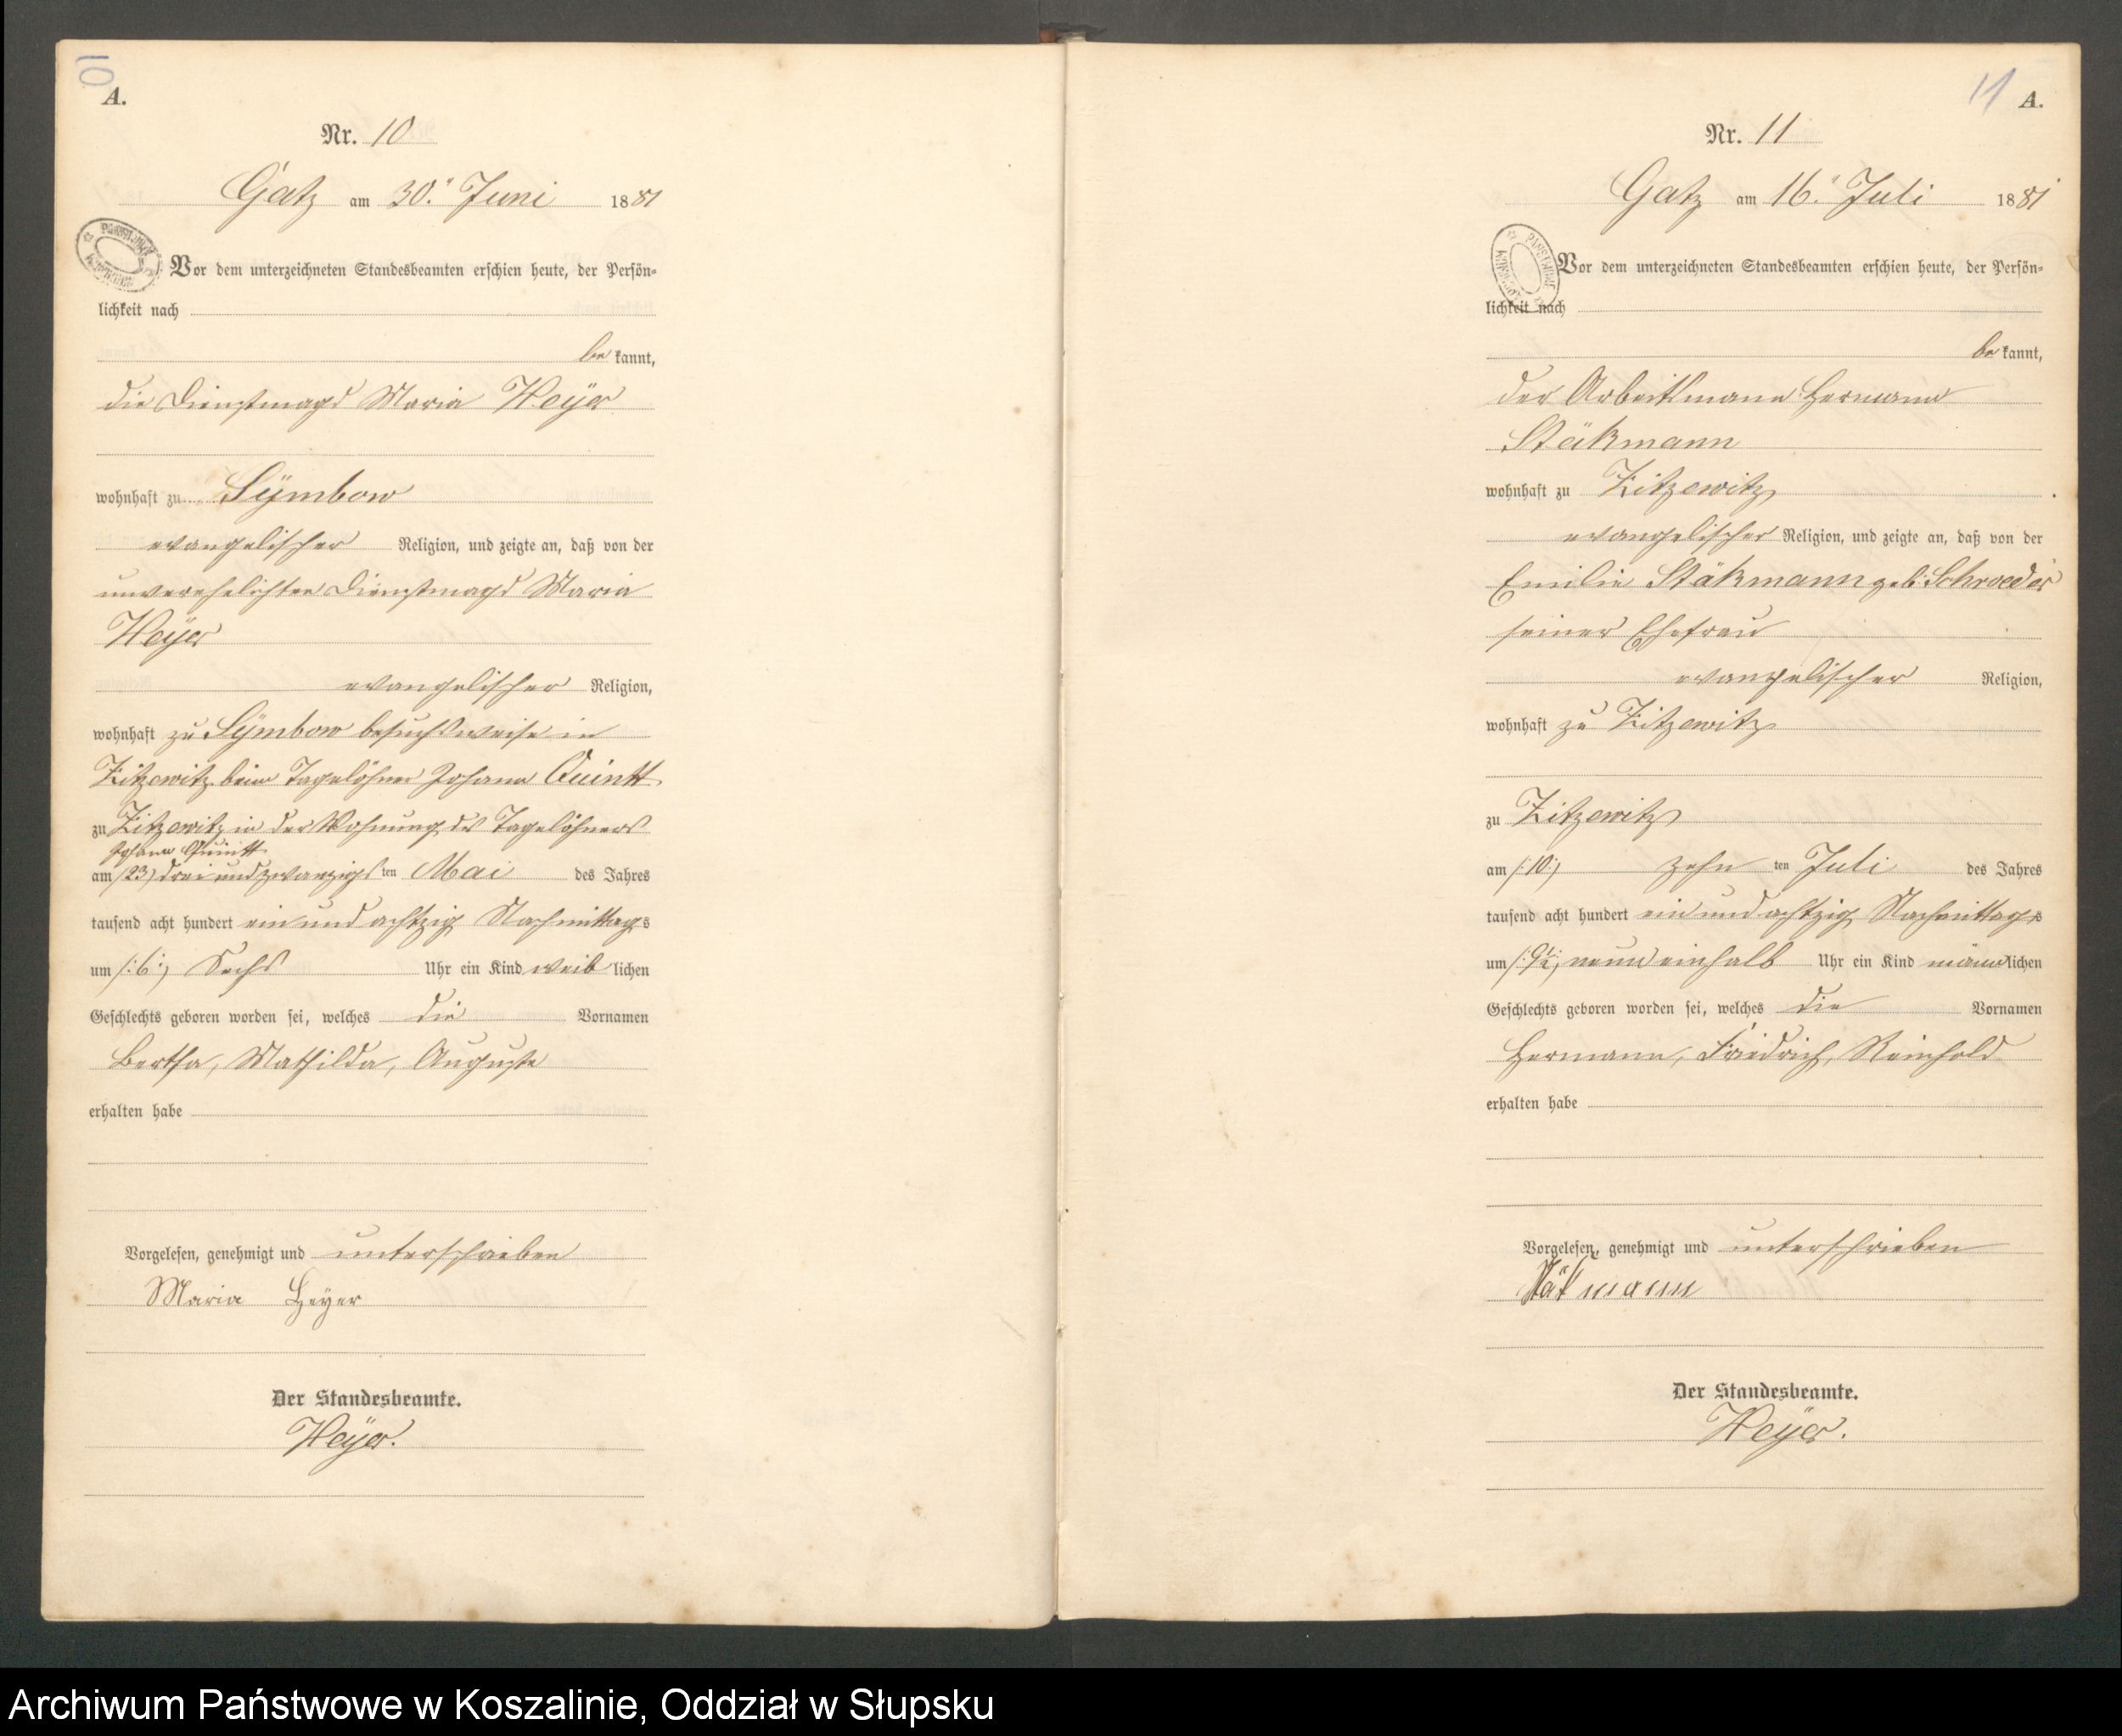 10
A.
Nr. 10
Gatz am 30. Juni 1881
Vor dem unterzeichneten Standesbeamten erschien heute, der Persön=
lichkeit nach
be kannt,
die Dienstmagd Maria Heÿer
wohnhaft zu Sÿmbow
evangelischer Religion, und zeigte an, daß von der
unverehelichten Dienstmagd Maria
Heÿer
evangelischer Religion,
wohnhaft zu Sÿmbow besuchsweise in
Zitzewitz beim Tagelöhner Johann Quintt
zu Zitzewitz in der Wohnung des Tagelöhners
Johann Quintt
am /23/ drei und zwanzigsten Mai des Jahres
tausend acht hundert ein und achtzig Nachmittags
um /:6:/ Sechs Uhr ein Kind weiblichen
Geschlechts geboren worden sei, welches die Vornamen
Bertha, Mathilda, Auguste
erhalten habe
Vorgelesen, genehmigt und unterschrieben
Maria Heyer
Der Standesbeamte.
Heÿer.
11
A.
Nr. 11
Gatz am 16. Juli 1881
Vor dem unterzeichneten Standesbeamten erschien heute, der Persön=
lichkeit nach
be kannt,
der Arbeitsmann Hermann
Stäkmann
wohnhaft zu Zitzewitz
evangelischer Religion, und zeigte an, daß von der
Emilie Stäkmann geb. Schroeder
seiner Ehefrau
evangelischer Religion,
wohnhaft zu Zitzewitz
zu Zitzewitz
am /:10:/ zehn ten Juli des Jahres
tausend acht hundert ein und achtzig Nachmittags
um /:9½:/ neun einhalb Uhr ein Kind männlichen
Geschlechts geboren worden sei, welches die Vornamen
Hermann, Friedrich, Reinhold
erhalten habe
Vorgelesen, genehmigt und unterschrieben
Stäkmann
Der Standesbeamte.
Heÿer.
Archiwum Państwowe w Koszalinie, Oddział w Słupsku